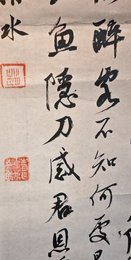 醉客不知何處
魚隱刀感君恩
水